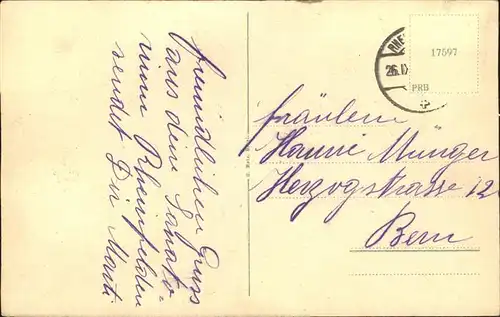 freundlichen Gruss
aus dem Sanato-
rium Rheinfelden
sendet Dir Marti
RHE
26.IX
17697
PRB
Fräulein
Hanni Münger
Herzogstrasse 12
Bern